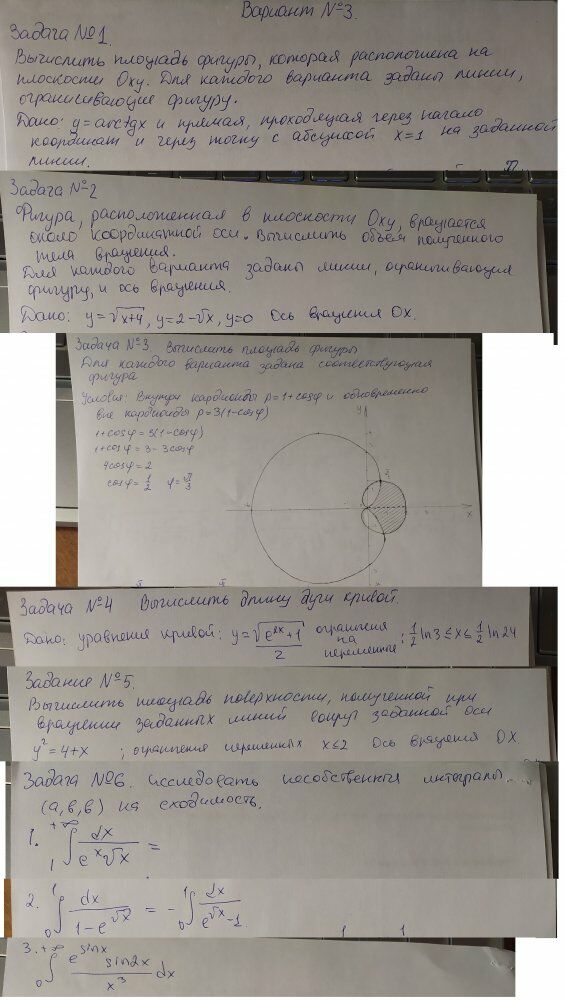 Вариант №3.
Задача №1.
Вычислить площадь фигуры, которая расположена на
плоскости Oxy. Для каждого варианта заданы линии,
ограничивающие фигуру.
Дано: y = arctgx и прямая, проходящая через начало
координат и через точку с абсциссой x=1 на заданной
линии.
Задача №2
Фигура, расположенная в плоскости Oxy, вращается
около координатной оси. Вычислить объем полученного
тела вращения.
Для каждого варианта заданы линии, ограничивающие
фигуру, и ось вращения.
Дано: y=√(x+4), y=2-√x, y=0 Ось вращения Ox.
Задача №3 Вычислить площадь фигуры
Для каждого варианта задана соответствующая
фигура
Условия: Внутри кардиоиды ρ=1+cosφ и одновременно
вне кардиоиды ρ=3(1-cosφ)
1+cosφ=3(1-cosφ)
1+cosφ=3-3cosφ
4cosφ=2
cosφ=1/2 φ=π/3
y
x
Задача №4 Вычислить длину дуги кривой.
Дано: уравнения кривой: y=√(e^(2x)+1)/2 ограничения на переменные: 1/2 ln3 ≤ x ≤ 1/2 ln24
Задание №5.
Вычислить площадь поверхности, полученной при
вращении заданных линий вокруг заданной оси
y²=4+x ; ограничения переменных x≤2 Ось вращения OX.
Задача №6. исследовать несобственные интегралы
(а, б, в) на сходимость.
1. ∫₁^(+∞) dx/(e^x √x) =
2. ∫₀¹ dx/(1-e^(√x)) = -∫₀¹ dx/(e^(√x)-1)
3. ∫₀^(+∞) e^(sinx) sin2x/x³ dx